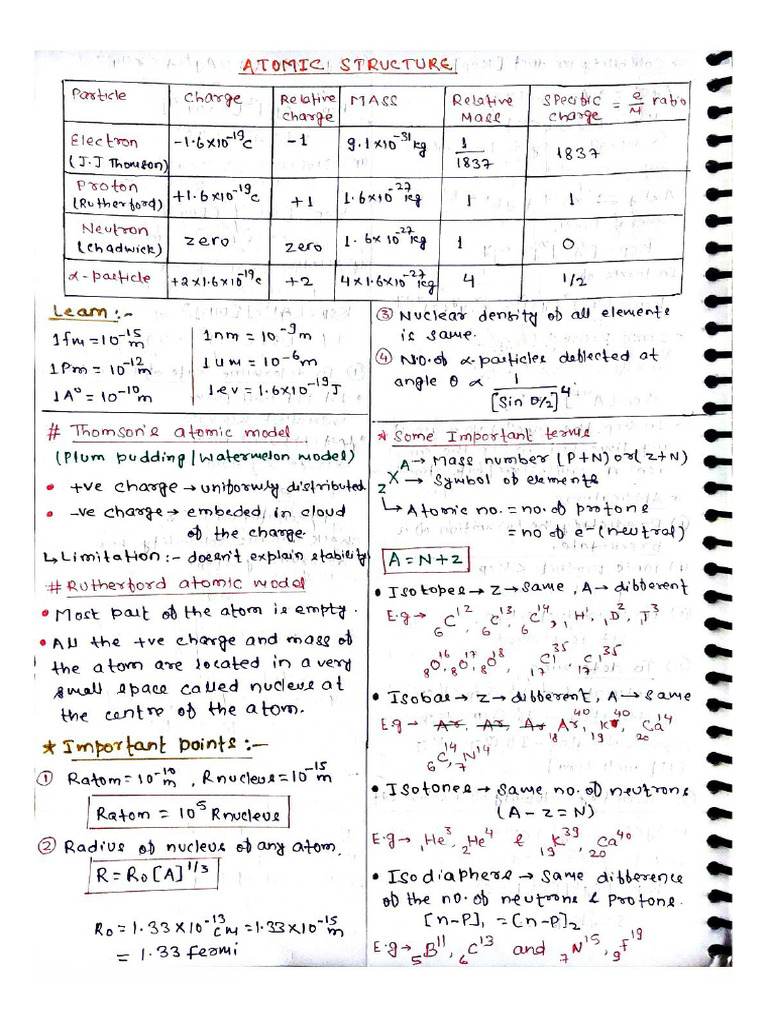 ATOMIC STRUCTURE
Particle | Charge | Relative Charge | MASS | Relative Mass | Specific Charge = e/M ratio
Electron (J.J Thomson) | -1.6×10⁻¹⁹C | -1 | 9.1×10⁻³¹kg | 1/1837 | 1837
Proton (Rutherford) | +1.6×10⁻¹⁹C | +1 | 1.6×10⁻²⁷kg | 1 | 1
Neutron (Chadwick) | zero | zero | 1.6×10⁻²⁷kg | 1 | 0
α-particle | +2×1.6×10⁻¹⁹C | +2 | 4×1.6×10⁻²⁷kg | 4 | 1/2
Learn :-
1fm = 10⁻¹⁵m
1Pm = 10⁻¹²m
1A° = 10⁻¹⁰m
1nm = 10⁻⁹m
1um = 10⁻⁶m
1ev = 1.6×10⁻¹⁹J
# Thomson's atomic model
(Plum pudding/watermelon model)
• +ve charge → uniformly distributed
• -ve charge → embeded, in cloud
of the charge.
↳ Limitation :- doesn't explain stability
# Rutherford atomic model
• Most part of the atom is empty.
• All the +ve charge and mass of
the atom are located in a very
small space called nucleus at
the centre of the atom.
* Important points :-
① Ratom = 10⁻¹⁰m, Rnucleus = 10⁻¹⁵m
Ratom = 10⁵ Rnucleus
② Radius of nucleus of any atom.
R = R₀[A]^1/3
R₀ = 1.33×10⁻¹³cm = 1.33×10⁻¹⁵m
= 1.33 fermi
③ Nuclear density of all elements
is same.
④ No. of α-particles deflected at
angle θ α 1/[Sin θ/2]⁴
* Some Important terms
A → Mass number (P+N) or (z+N)
zX → Symbol of elements
↳ Atomic no. = no. of protons
= no of e⁻ (neutral)
A = N+z
• Isotopes → z → same, A → different
E.g → ₆C¹², ₆C¹³, ₆C¹⁴, ₁H¹, ₁D², ₁T³
₈O¹⁶, ₈O¹⁷, ₈O¹⁸ ₁₇Cl³⁵, ₁₇Cl³⁵
• Isobas → z → different, A → same
Eg → Ar, Ar, Ar ₁₈Ar⁴⁰, ₁₉K⁴⁰, ₂₀Ca¹⁴
₆C¹⁴, ₇N¹⁴
• Isotones → same no. of neutrons
(A - z = N)
E.g → ₁He³, ₂He⁴ & ₁₉K³⁹, ₂₀Ca⁴⁰
• Isodiaphers → same difference
of the no. of neutrons & protons.
[n-P]₁ = [n-P]₂
E.g → ₅B¹¹, ₆C¹³ and ₇N¹⁵, ₉F¹⁹